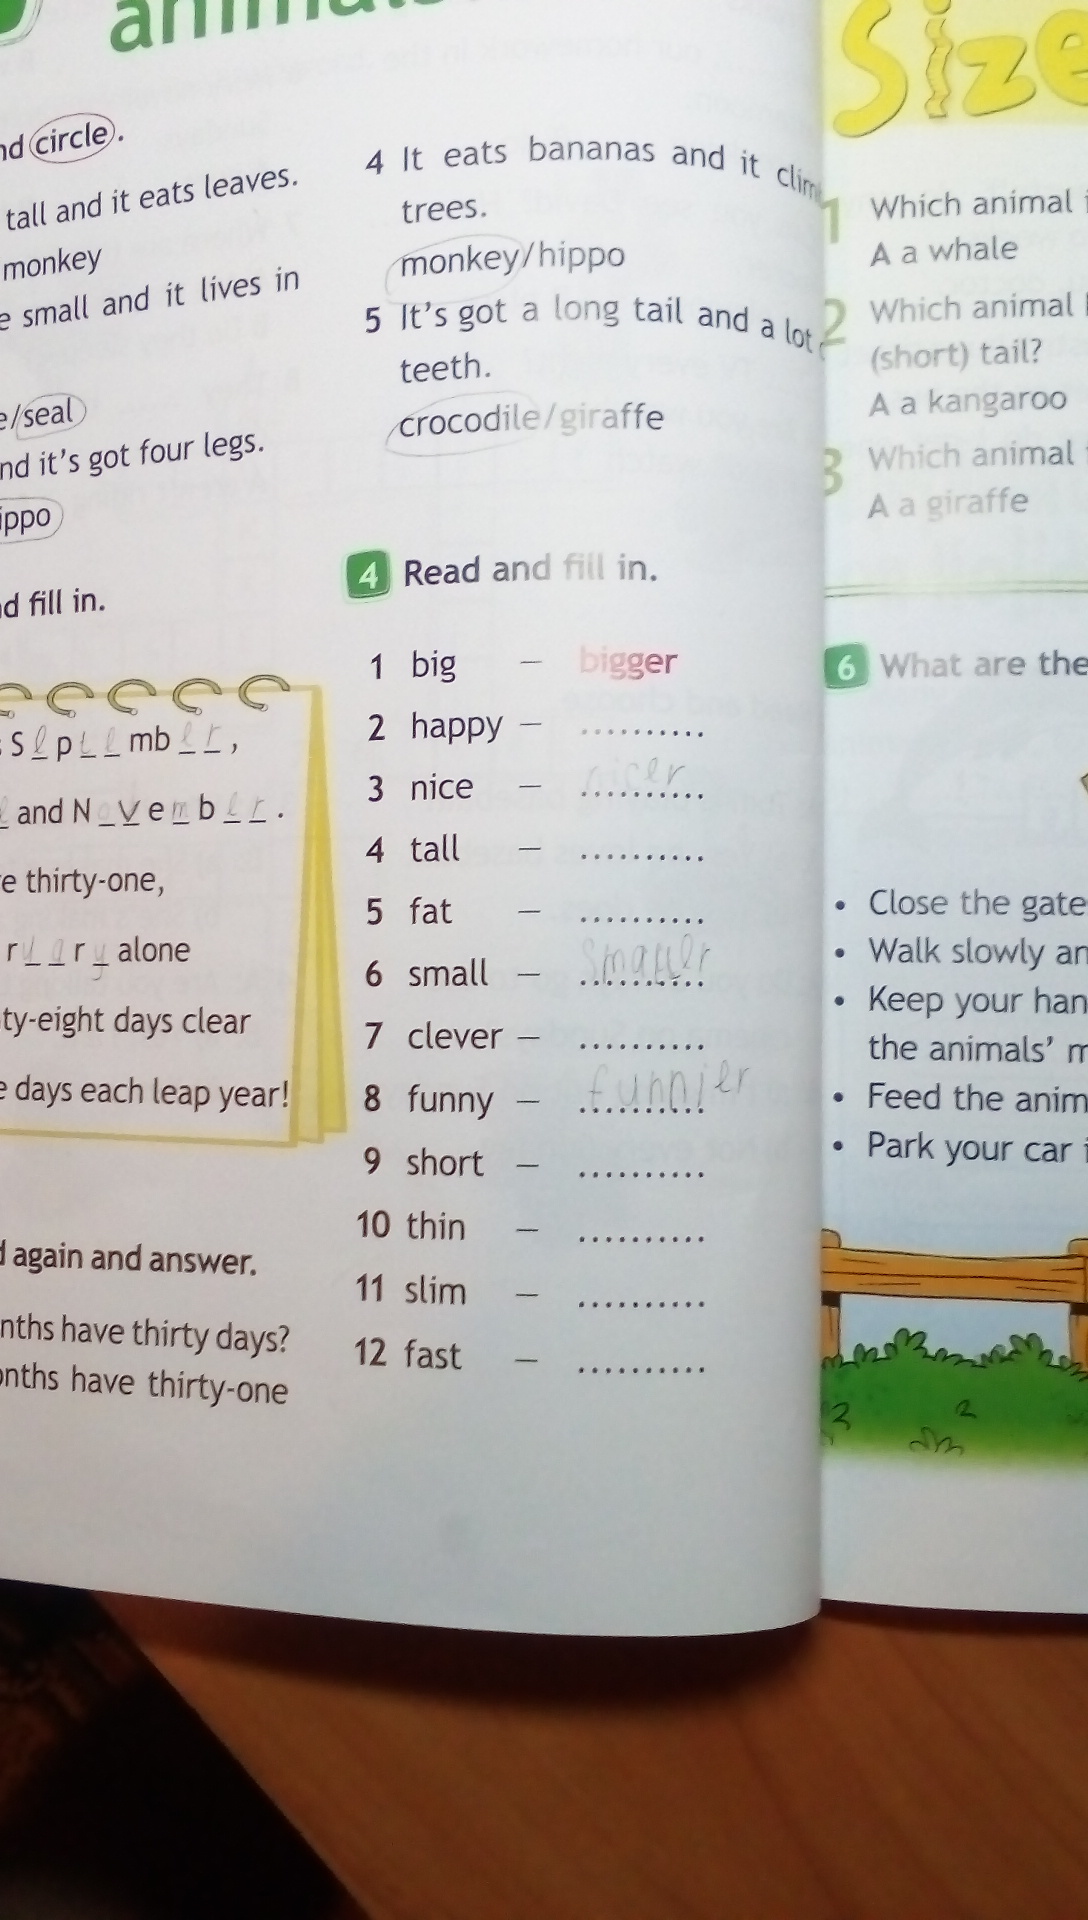 animals
circle.
tall and it eats leaves.
monkey
small and it lives in
/seal
it's got four legs.
fill in.
S e p t e mb e r ,
and N o v e m b e r .
thirty-one,
r u a r y alone
days clear
days each leap year!
again and answer.
have thirty days?
have thirty-one
4 It eats bananas and it
trees.
monkey/hippo
5 It's got a long tail and a lot
teeth.
crocodile/giraffe
4 Read and fill in.
1 big – bigger
2 happy – ..........
3 nice – nicer
4 tall – ..........
5 fat – ..........
6 small – smaller
7 clever – ..........
8 funny – funnier
9 short – ..........
10 thin – ..........
11 slim – ..........
12 fast – ..........
Size
1 Which animal
A a whale
2 Which animal
(short) tail?
A a kangaroo
3 Which animal
A a giraffe
6 What are the
• Close the gate
• Walk slowly
• Keep your
the animals'
• Feed the
• Park your car